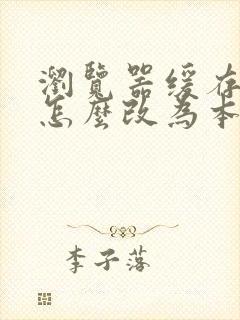 瀏覽器緩存
怎麼改為本
李子落